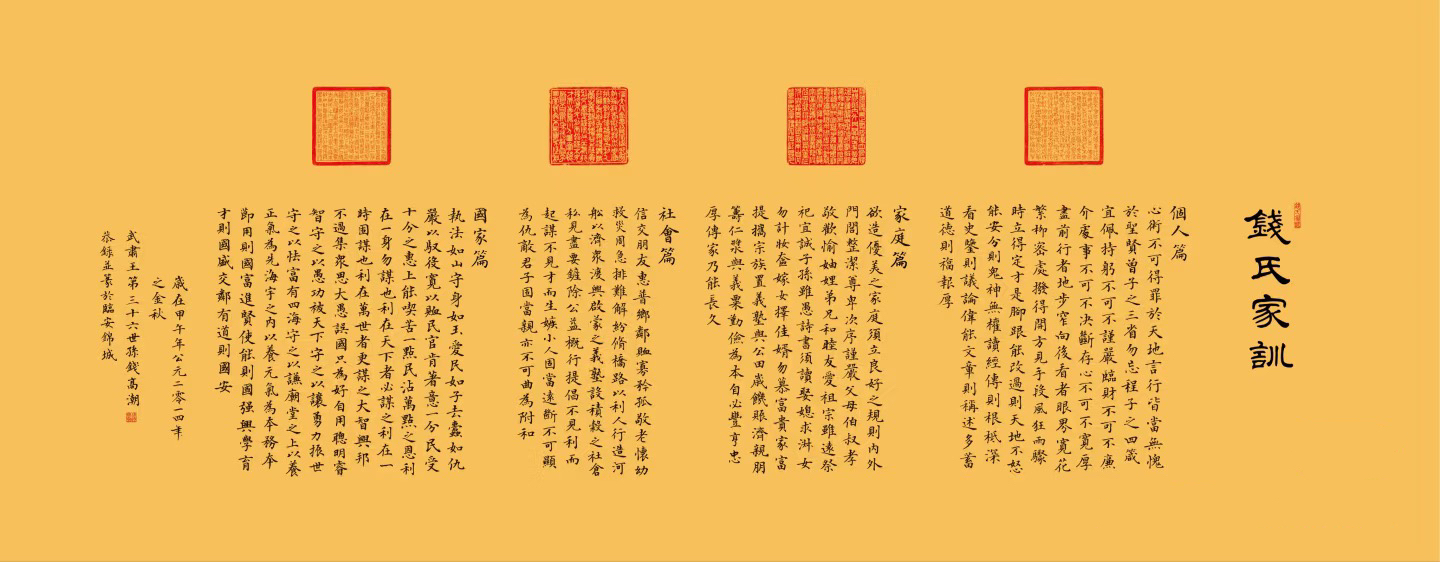 錢氏家訓
個人篇
心術不可得罪於天地言行皆當無愧
於聖賢曾子之三省勿忘程子之四箴
宜佩持躬不可不謹嚴臨財不可不廉
介處事不可不決斷存心不可不寬厚
盡前行者地步窄向後看者眼界寬花
繁柳密處撥得開方見手段風狂雨驟
時立得定才是腳跟能改過則天地不怒
能安分則鬼神無權讀經傳則根柢深
看史鑒則議論偉能文章則稱述多蓄
道德則福報厚
家庭篇
欲造優美之家庭須立良好之規則內外
門閭整潔尊卑次序謹嚴父母伯叔孝
敬歡愉妯娌弟兄和睦友愛祖宗雖遠祭
祀宜誠子孫雖愚詩書須讀娶媳求淑女
勿計妝奩嫁女擇佳婿勿慕富貴家富
提攜宗族置義塾與公田歲饑賑濟親朋
籌仁漿與義粟勤儉為本自必豐亨忠
厚傳家乃能長久
社會篇
信交朋友惠普鄉鄰賉寡矜孤敬老懷幼
救災周急排難解紛脩橋路以利人行造河
船以濟眾渡興啟蒙之義塾設積穀之社倉
私見盡要鏟除公益概行提倡不見利而
起謀不見才而生嫉小人固當遠斷不可顯
為仇敵君子固當親亦不可曲為附和
國家篇
執法如山守身如玉愛民如子去蠹如仇
嚴以馭役寬以賉民官肯著意一分民受
十分之惠上能喫苦一點民沾萬點之恩利
在一身勿謀也利在天下者必謀之利在一
時固謀也利在萬世者更謀之大智興邦
不過集眾思大愚誤國只為好自用聰明睿
智守之以愚功被天下守之以讓勇力振世
守之以怯富有四海守之以謙廟堂之上以養
正氣為先海宇之內以養元氣為本務本
節用則國富進賢使能則國強興學育
才則國盛交鄰有道則國安
歲在甲午年公元二零一四年
之金秋
武肅王第三十六世孫錢高潮
恭錄並纂於臨安錦城